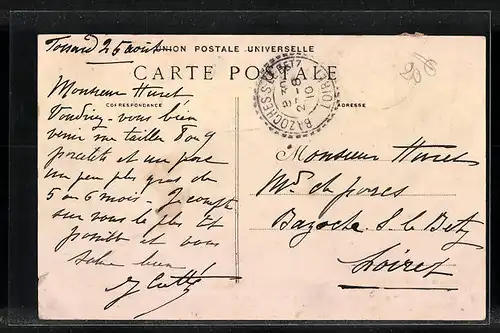 25 août
UNION POSTALE UNIVERSELLE
CARTE POSTALE
CORRESPONDANCE
ADRESSE
BAZOCHES S/ BETZ
LOIRET
Monsieur Huret
Voudriez-vous bien
venir me tailler 8 ou 9
porcelets et un porc
un peu plus gros de
5 ou 6 mois. Je compte
sur vous le plus tôt
possible et vous
salue bien
Monsieur Huret
Md de porcs
Bazoche S. le Betz
Loiret
206